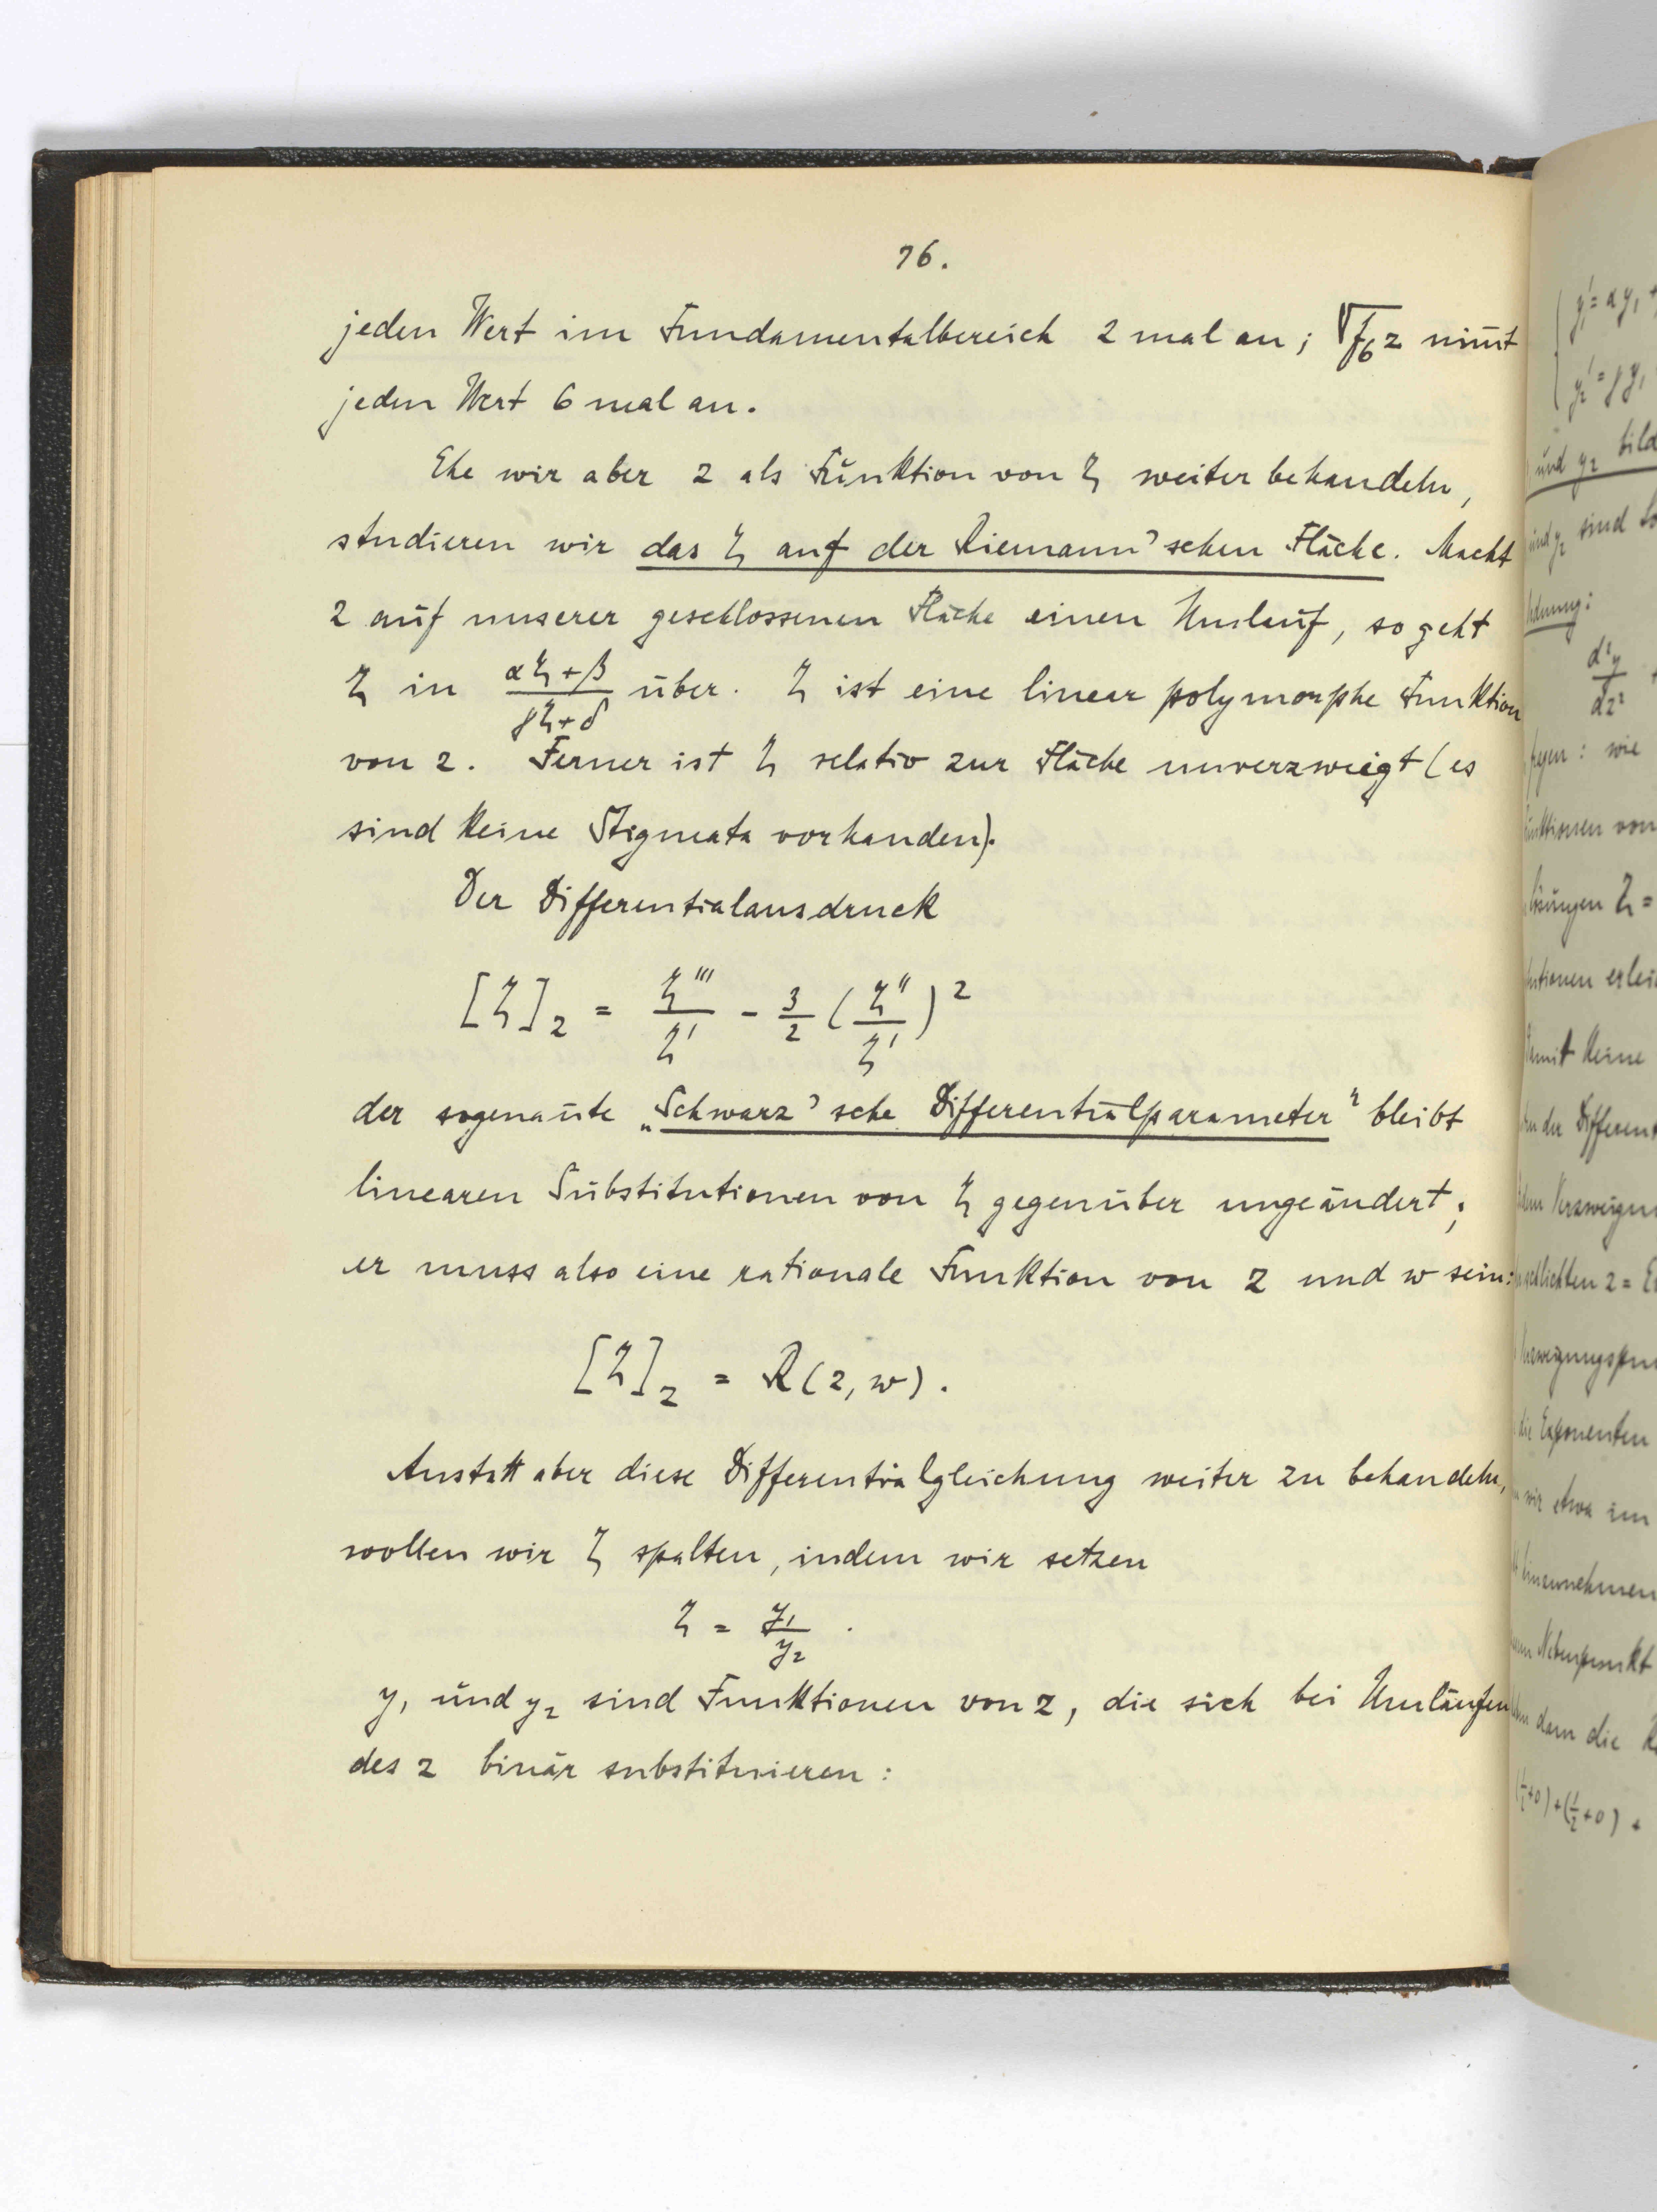 76.
jeden Wert im Fundamentalbereich 2 mal an; √f₆z nim̄t
jeden Wert 6 mal an.
Ehe wir aber z als Funktion von ζ weiter behandeln,
studieren wir das ζ auf der Riemann'schen Fläche. Macht
z auf unserer geschlossenen Fläche einen Umlauf, so geht
ζ in (αζ+β)/(γζ+δ) über. ζ ist eine linear polymorphe Funktion
von z. Ferner ist ζ relativ zur Fläche unverzweigt (es
sind keine Stigmata vorhanden).
Der Differentialausdruck
[ζ]_z = ζ'''/ζ' - 3/2 (ζ''/ζ')²
der sogenan̄te „Schwarz'sche Differentialparameter" bleibt
linearen Substitutionen von ζ gegenüber ungeändert;
er muss also eine rationale Funktion von z und w sein:
[ζ]_z = R(z, w).
Anstatt aber diese Differentialgleichung weiter zu behandeln,
wollen wir ζ spalten, indem wir setzen
ζ = y₁/y₂ .
y₁ und y₂ sind Funktionen von z, die sich bei Umläufen
des z binär substituieren:
y₁' = αy₁ +
y₂' = γy₁
und y₂ bild
und y₂ sind
d²y/dz² +
: wie
von
ζ =
keine
der Different
z =
die Exponenten
wir etwa im
hinzunehmen
Nebenpunkt
dann die
(½+0)+(½+0) +